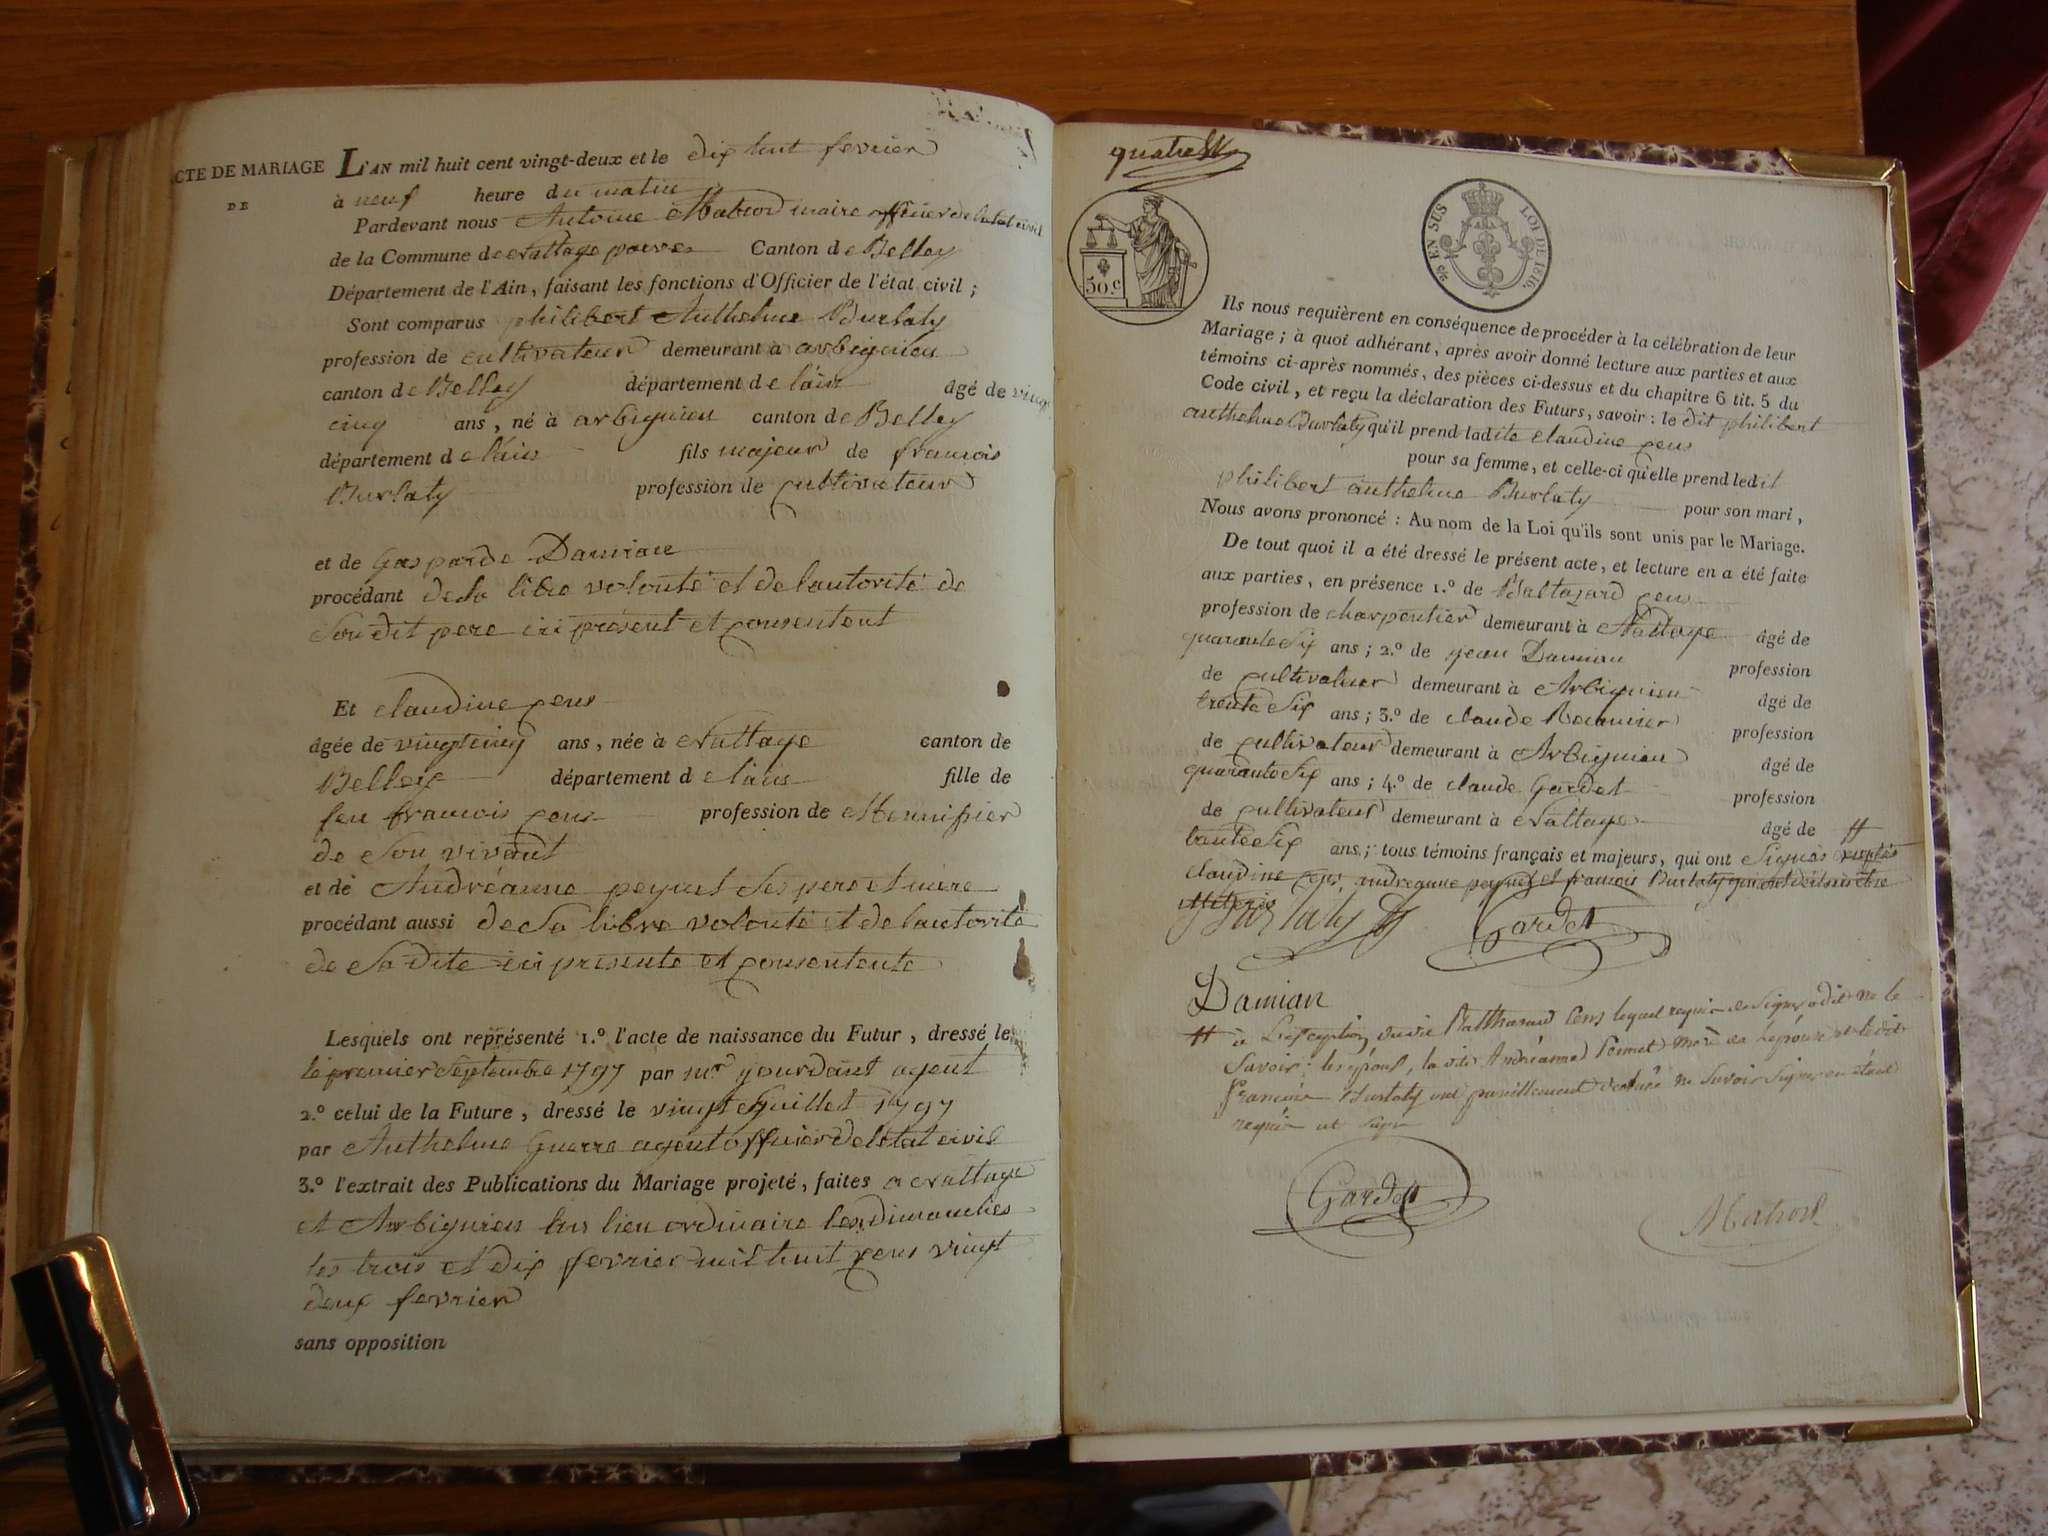 ACTE DE MARIAGE
DE
L'AN mil huit cent vingt-deux et le dix huit fevrier
à neuf heure du matin
Pardevant nous Antoine maire officier de l'etat civil
de la Commune de Canton de Belley
Département de l'Ain, faisant les fonctions d'Officier de l'état civil ;
Sont comparus philibert Anthelme Burlaty
profession de cultivateur demeurant à arbignieu
canton de Belley département de l'ain âgé de vingt
cinq ans, né à arbignieu canton de Belley
département de l'ain fils majeur de francois
Burlaty profession de cultivateur
et de Gasparde Damiane
procédant de sa libre volonté et de l'autorité de
Son dit pere ici présent et consentent
Et claudine cens
âgée de vingtcinq ans, née à Nattage canton de
Belley département de l'ain fille de
feu francois cens profession de Menuisier
de Son vivant
et de Andréanne peynet Ses pere et mere
procédant aussi de Sa libre volonté et de l'autorité
de Sa dite ici présente et consentente
Lesquels ont représenté 1.º l'acte de naissance du Futur, dressé le
le premier Septembre 1797 par mr jourdant agent
2.º celui de la Future, dressé le vingt Juillet 1797
par Anthelme Guerre agent officier de letat civil
3.º l'extrait des Publications du Mariage projeté, faites a Nattage
et Arbignieu lieu ordinaire les dimanches
les trois et dix fevrier mil huit cens vingt
deux fevrier
sans opposition
quatre
50.c
EN SUS LOI DE 1816.
Ils nous requièrent en conséquence de procéder à la célébration de leur
Mariage ; à quoi adhérant, après avoir donné lecture aux parties et aux
témoins ci-après nommés, des pièces ci-dessus et du chapitre 6 tit. 5 du
Code civil, et reçu la déclaration des Futurs, savoir : le dit philibert
anthelme Burlaty qu'il prend ladite claudine cens
pour sa femme, et celle-ci qu'elle prend ledit
philibert anthelme Burlaty pour son mari,
Nous avons prononcé : Au nom de la Loi qu'ils sont unis par le Mariage.
De tout quoi il a été dressé le présent acte, et lecture en a été faite
aux parties, en présence 1.º de Baltazard cens
profession de charpentier demeurant à Nattage âgé de
quarante Six ans ; 2.º de jean Damian profession
de cultivateur demeurant à Arbignieu âgé de
trente Six ans ; 3.º de claude profession
de cultivateur demeurant à Arbignieu âgé de
quarante Six ans ; 4.º de claude Gardet profession
de cultivateur demeurant à Nattage âgé de
trente Six ans ; tous témoins français et majeurs, qui ont Signés exceptés
claudine cens, andreanne peynet et francois Burlaty qui ont dit
Burlaty Gardet
Damian
à L'exception dudit Balthazard Cens lequel requis de Signer a dit ne le
Savoir ; les époux, la dite Andréanne Peynet mere de L'épouse et le dit
François Burlaty ont pareillement declaré ne Savoir Signer en étant
requis
Gardet